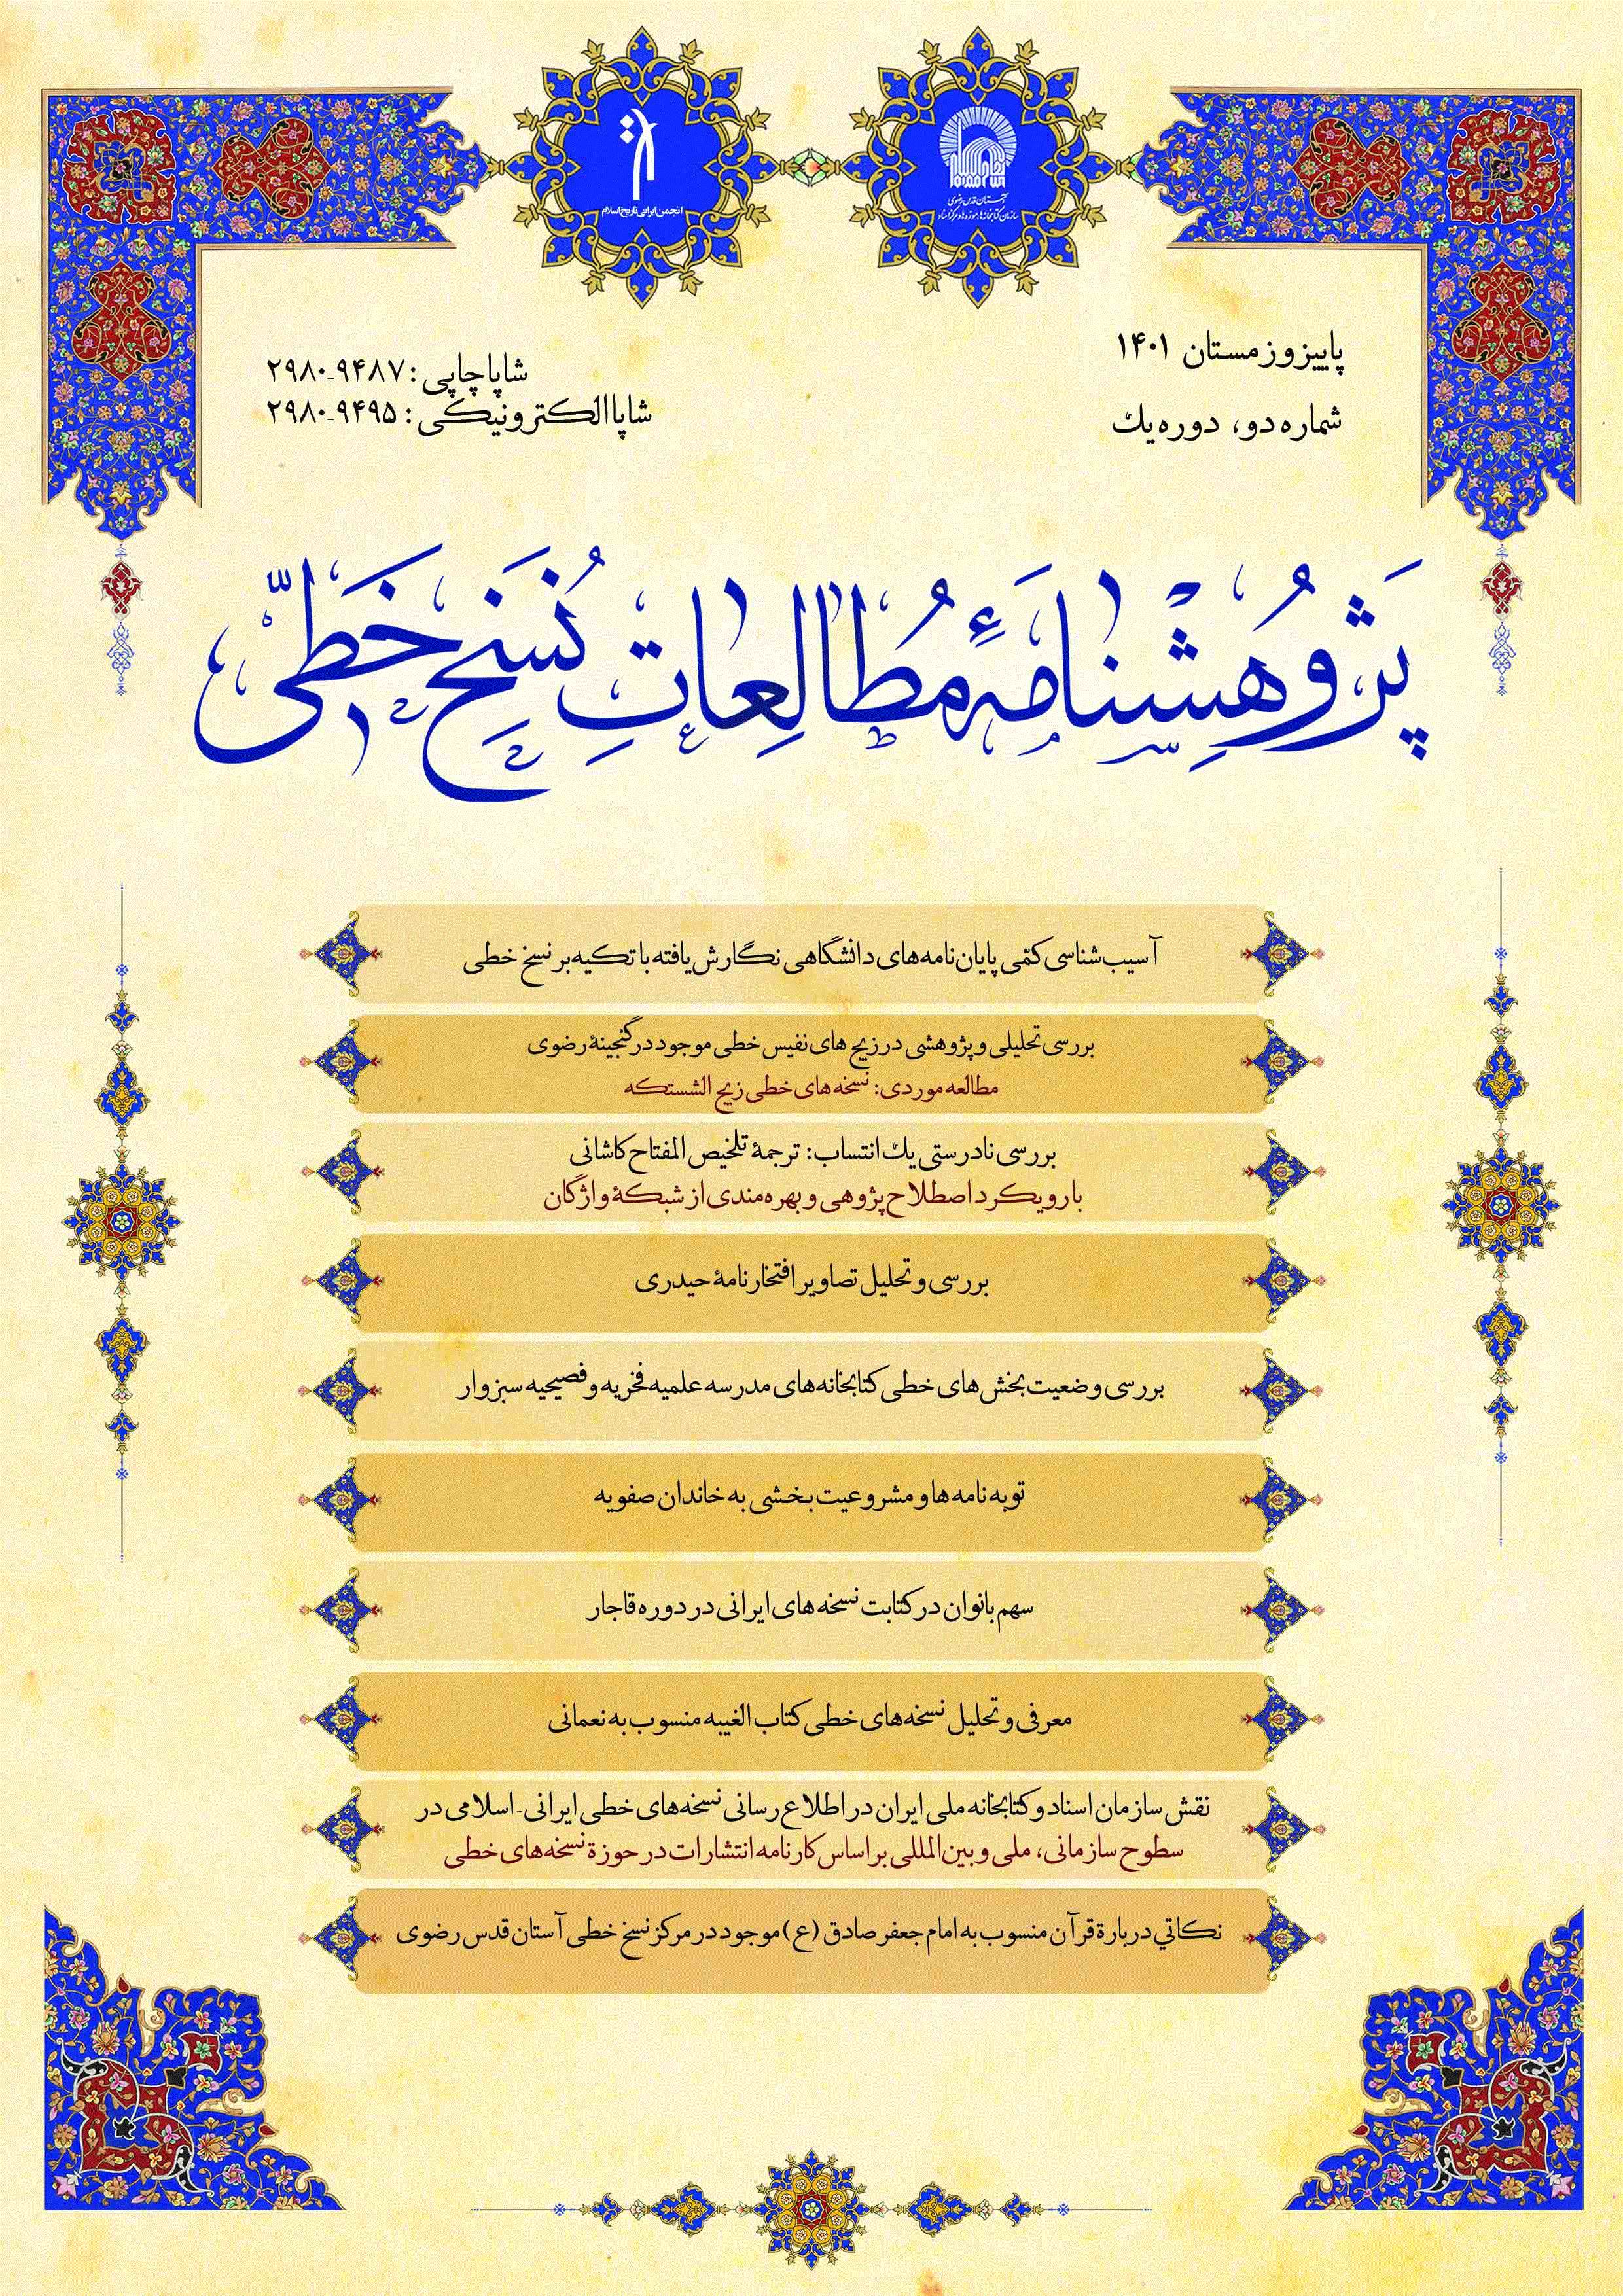 انجمن ایرانی تاریخ اسلام
آستان قدس رضوی
سازمان کتابخانه‌ها، موزه‌ها و مرکز اسناد
پاییز و زمستان ۱۴۰۱
شماره دو، دوره یك
شاپا چاپی: ۲۹۸۰-۹۴۸۷
شاپا الکترونیکی: ۲۹۸۰-۹۴۹۵
پَژوُهِشنامَهٔ مُطالِعاتِ نُسَخِ خَطّی
آسیب‌شناسی کمّی پایان‌نامه‌های دانشگاهی نگارش‌یافته با تکیه بر نسخ خطی
بررسی تحلیلی و پژوهشی در زیج های نفیس خطی موجود در گنجینهٔ رضوی
مطالعه موردی: نسخه‌های خطی زیج الشستکه
بررسی نادرستی یك انتساب: ترجمهٔ تلخیص المفتاح کاشانی
با رویکرد اصطلاح‌پژوهی و بهره‌مندی از شبکهٔ واژگان
بررسی و تحلیل تصاویر افتخارنامهٔ حیدری
بررسی وضعیت بخش‌های خطی کتابخانه‌های مدرسه علمیه فخریه و فصیحیه سبزوار
توبه نامه ها و مشروعیت بخشی به خاندان صفویه
سهم بانوان در کتابت نسخه های ایرانی در دوره قاجار
معرفی و تحلیل نسخه‌های خطی کتاب الغیبه منسوب به نعمانی
نقش سازمان اسناد و کتابخانه ملی ایران در اطلاع رسانی نسخه‌های خطی ایرانی-اسلامی در
سطوح سازمانی، ملی و بین‌المللی بر اساس کارنامه انتشارات در حوزة نسخه‌های خطی
نکاتي دربارة قرآن منسوب به امام جعفر صادق (ع) موجود در مرکز نسخ خطی آستان قدس رضوی